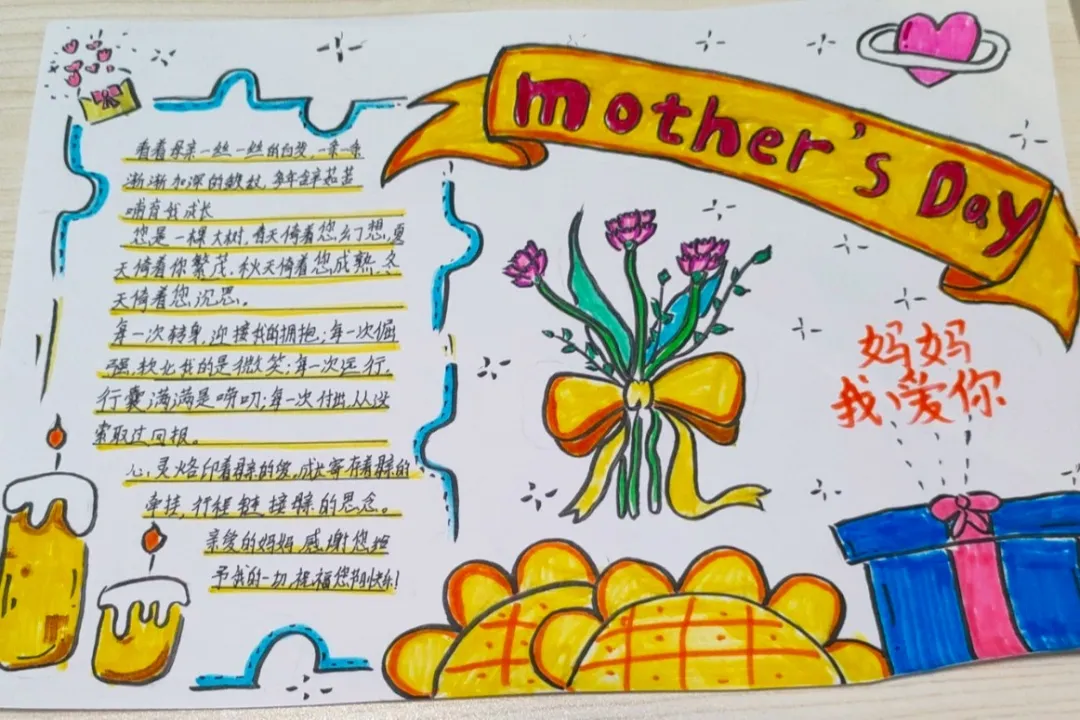 mother's Day
看着母亲一丝一丝的白发,一条一条
渐渐加深的皱纹,多年含辛茹苦
哺育我成长
您是一棵大树,春天倚着您幻想,夏
天倚着你繁茂,秋天倚着您成熟,冬
天倚着您沉思。
每一次转身,迎接我的拥抱;每一次倔
强,软化我的是微笑;每一次远行,
行囊满满是唠叨;每一次付出,从没
索取过回报。
心灵烙印着母亲的爱,成长寄存着母亲的
牵挂,行程链接母亲的思念。
亲爱的妈妈感谢您给
予我的一切,祝福您节日快乐!
妈妈
我爱你